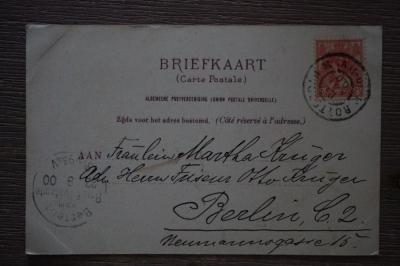 BRIEFKAART
(Carte Postale)
ALGEMEENE POSTVEREENIGING (UNION POSTALE UNIVERSELLE)
Zijde voor het adres bestemd. (Côté réservé à l'adresse.)
AAN Fräulein Martha Krüger
Adr. Herrn Friseur Otto Krüger
Berlin, C. 2.
Neumannsgasse 15.